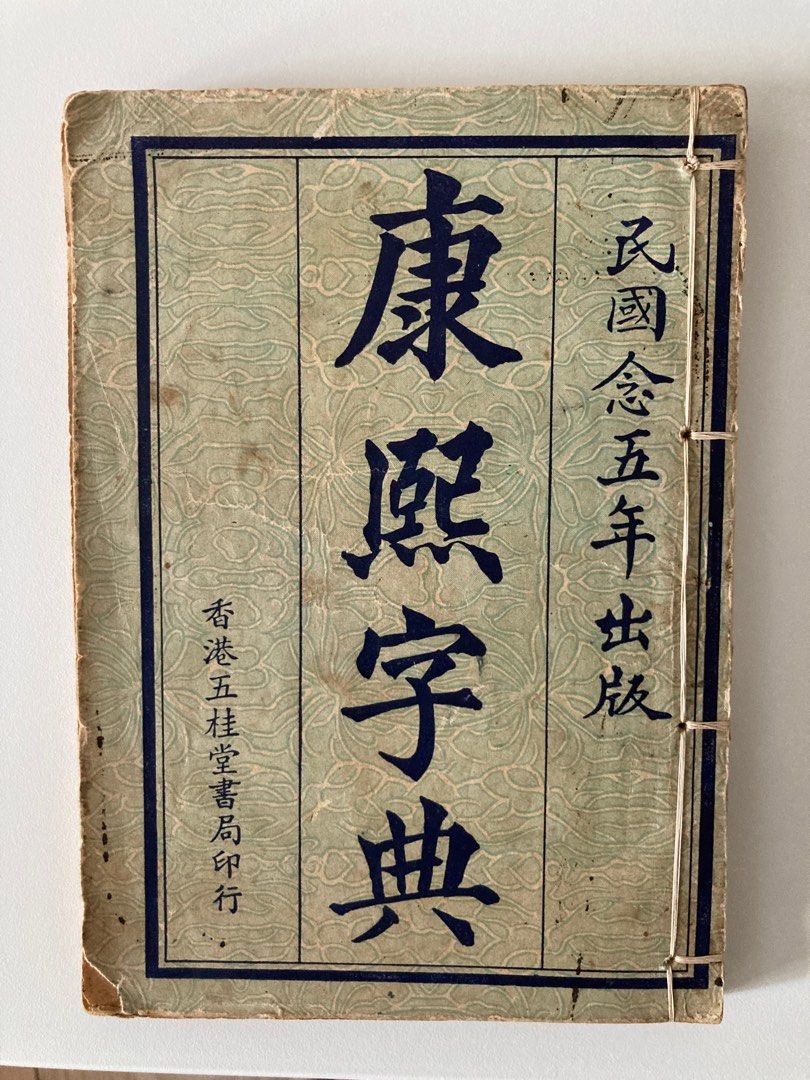 民國念五年出版
康熙字典
香港五桂堂書局印行